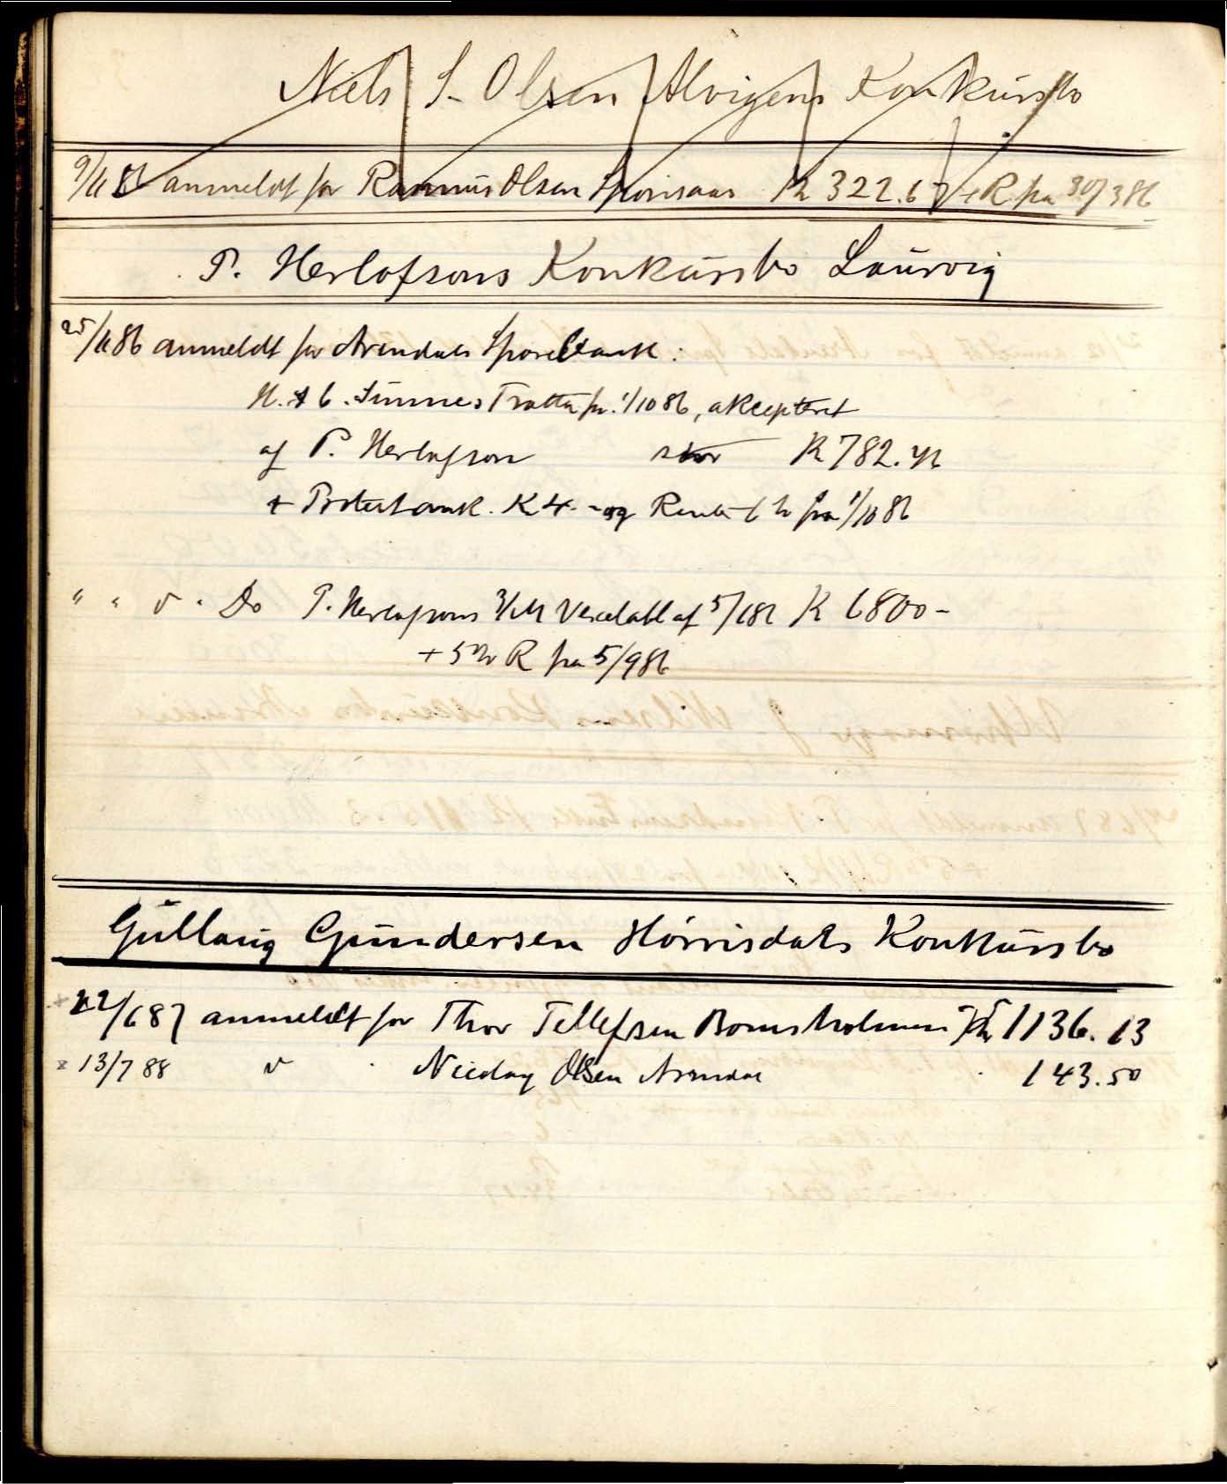 Niels S. Olsen Alvigens Konkursbo
anmeldt for Rasmus Olsen K 322.67 + R fra 30/3 86
P. Herlofsons Konkursbo Laurvig
25/11 86 anmeldt for Arendals Sparebank:
Tratta pr. 1/10 86, akcepteret
af P. Herlofson stor K 782.42
+ Protestomk. K 4.- og Rente 6 % fra 1/10 86
" " v. Do P. Herlofsons 3/M Vexelobl af 5/6 86 K 6800 -
+ 5 % R fra 5/9 86
Gullaug Gundersen Hørrisdals Konkursbo
22/6 87 anmeldt for Thor Tellefsen Bomsholmen K 1136.13
13/7 88 v Nicolay Olsen Arendal 143.50